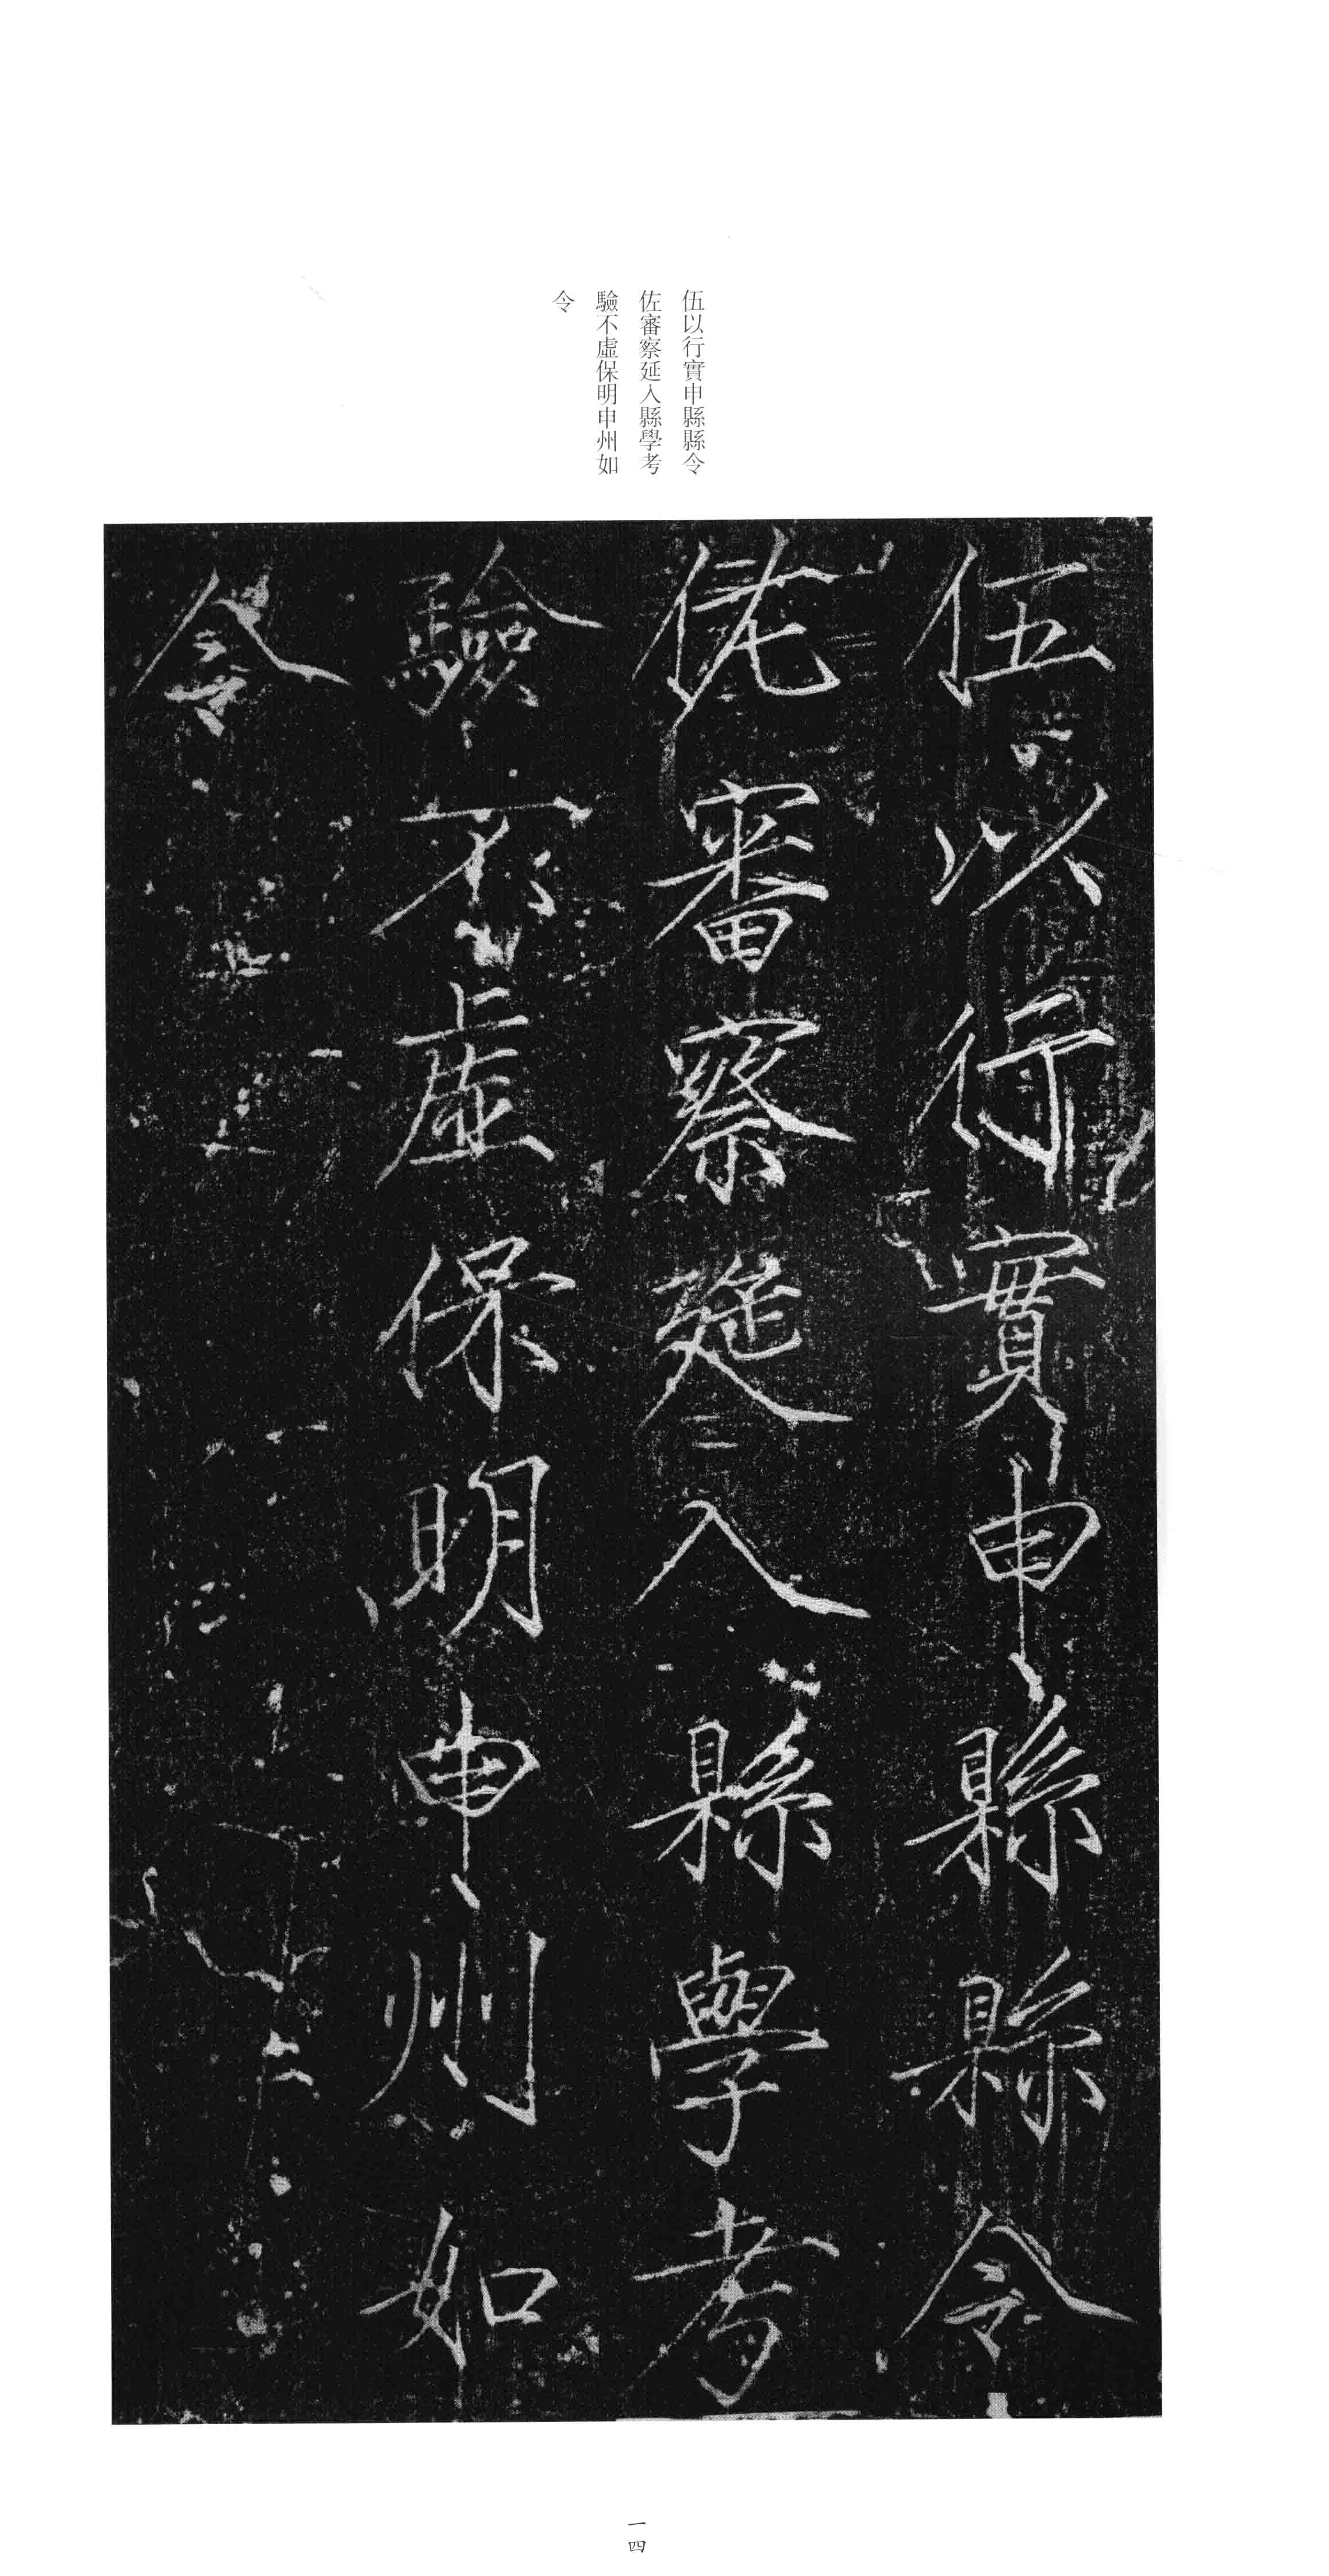 伍以行實申縣縣令
佐審察延入縣學考
驗不虛保明申州如
令
伍以行實申縣縣令
佐審察延入縣學考
驗不虛保明申州如
令
一四